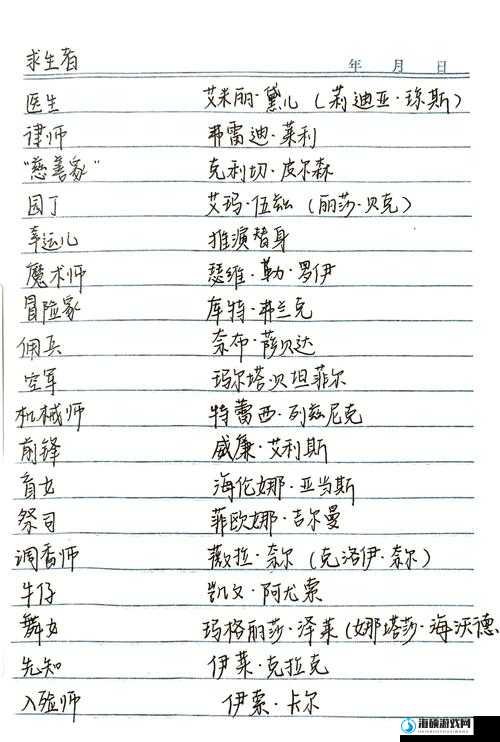 求生者 年 月 日
医生 艾米丽·黛儿（莉迪亚·琼斯）
律师 弗雷迪·莱利
“慈善家” 克利切·皮尔森
园丁 艾玛·伍兹（丽莎·贝克）
幸运儿 推演替身
魔术师 瑟维·勒·罗伊
冒险家 库特·弗兰克
佣兵 奈布·萨贝达
空军 玛尔塔·贝坦菲尔
机械师 特蕾西·列兹尼克
前锋 威廉·艾利斯
盲女 海伦娜·亚当斯
祭司 菲欧娜·吉尔曼
调香师 薇拉·奈尔（克洛伊·奈尔）
牛仔 凯文·阿尤索
舞女 玛格丽莎·泽莱（娜塔莎·海沃德
先知 伊莱·克拉克
入殓师 伊索·卡尔
海硕游戏网